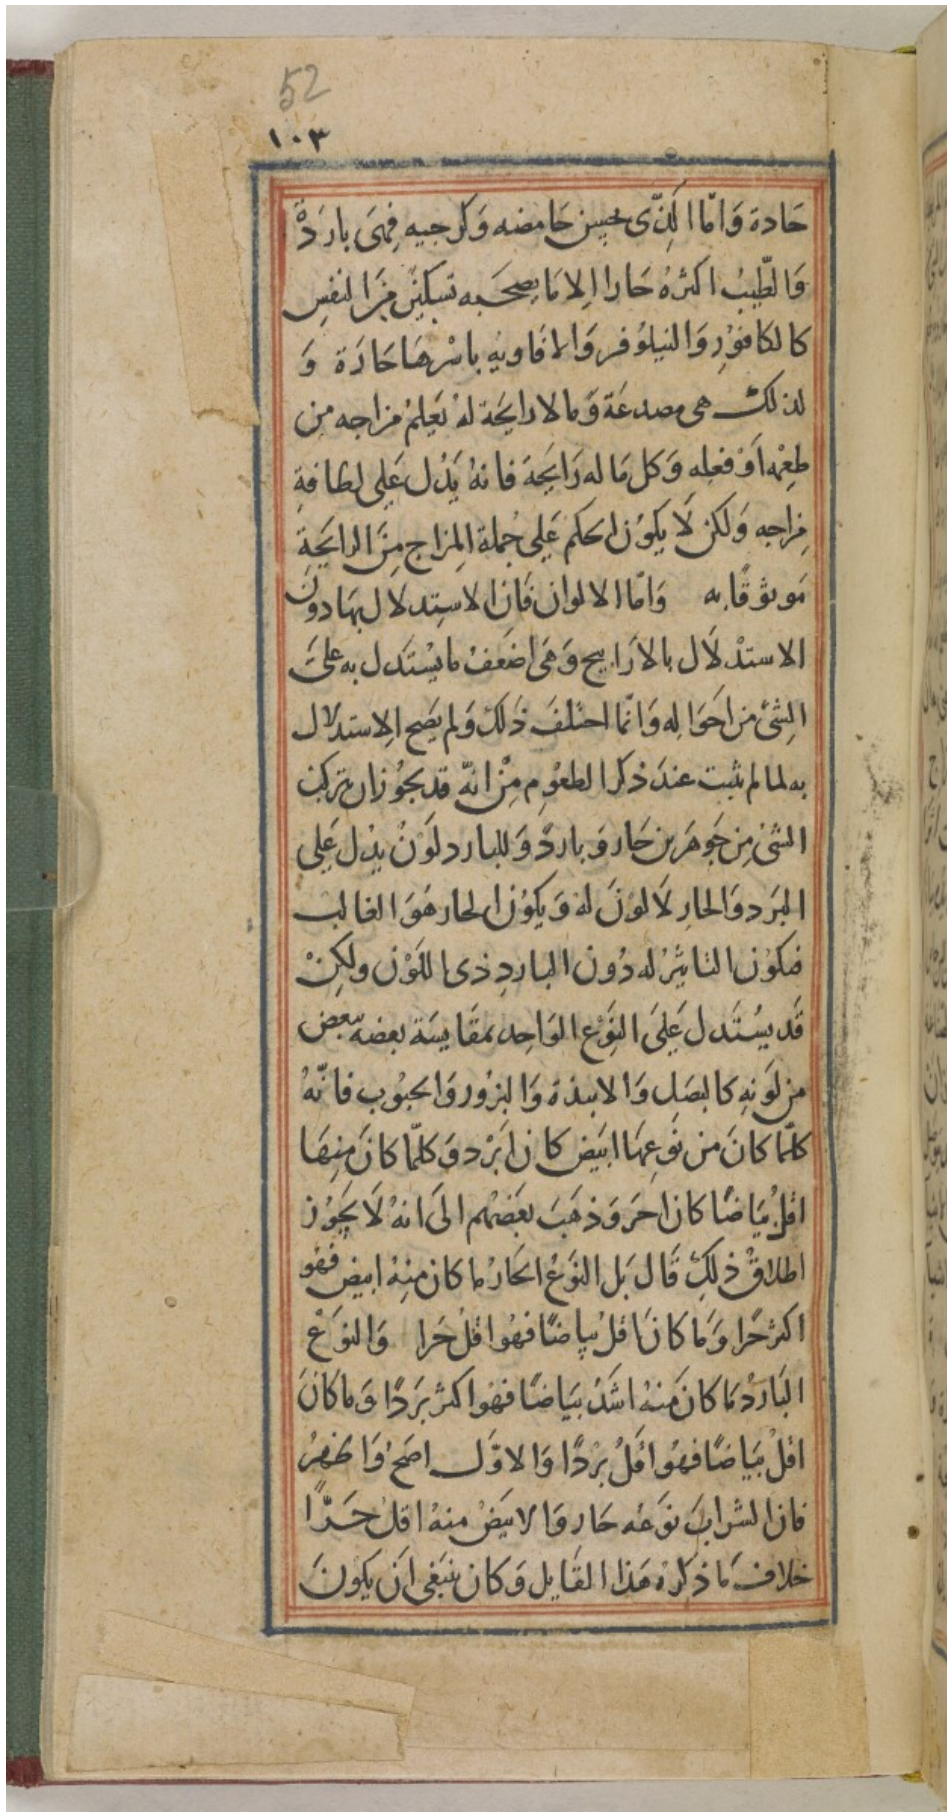 52
١٠٣
حادة وَامّا الَّذى يحس حامضه وَكرجيه فِهىَ باردَةٌ
وَالطّيبُ اكثرهُ حَارا اِلا مَا يصحَبه تسكينٌ مِنَ النفسِ
كالكافوُرِ وَالنيلوُفر وَالافاويهِ باسْرِهَا حَادَة وَ
لذلك هى مصدعَة وَمالا رايحَة لهُ يَعلمْ مزاجه من
طعِمه اَوْ فعِله وَكل مَا له رَايَحة فانهُ يَدُل عَلى لطافةِ
مِزاجه وَلكن لَا يكوُن الحكم عَلى جُملة المِزاج مِنَ الرايَحةِ
مَوثوقًا به وَامّا الالوان فَان الاستِدلال بهَا دونَ
الاستدْلَال بالارَاييح وَهىَ اضعَفُ ما يسْتَدل به علىَ
الشِئ من احَوَالِه وَانّما احتلفَ ذَلكَ وَلم يَصح الِاستدلال
به لما لم يثبت عندَ ذكر الطعوُم مِنْ انّه قد يجوُز ان يتركبَ
الشئ مِن جَوهَرين حَار وَ باردً وَللبارد لَوْنٌ يدُل عَلى
البَرد وَالحارِ لَا لوْنَ لهُ وَيكوُن الحار هَوَ الغالب
فيكوُن التاثيُر له دُون الباردِ ذى اللَوْن ولكِنْ
قَد يسُتَدل عَلىَ النَوْعِ الوَاحِد بمقَايسَة بعضه ببَعض
من لَونهِ كالبصَلِ وَالانبذة وَالبزوُر وَالحبوُب فانّهُ
كلّما كانَ من نَوعِهَا ابيَض كان ابَرْد وَكلّما كانَ مِنهَا
اقلُ بيَاضًا كان احَر وَذهَبَ بعَضهُم الىَ انهُ لَا يَجوُز
اطلاقْ ذلِكَ قَال بَل النوَعُ الحَارْ ما كان مِنهُ ابيض فهو
اكثر حَرا وَمَا كانَ اقلُ بيِاضًا فهوُ اقلُ حَرا وَالنوَعْ
البَاردُ مَا كانَ مَنهُ اشَدُ بيَاضًا فهو اكثر بَردًا وَما كانَ
اقلُ بيَاضًا فهوُ اقلُ بَردًا وَالاوّلَ اصَحْ وَاظهَرُ
فان الشرابَ نوَعه حَار وَالابيَضْ منهُ اقلُ حَرًّا
خلاف مَا ذكرهُ هَذا القَايل وَكان ينبَغى اَن يكونَ